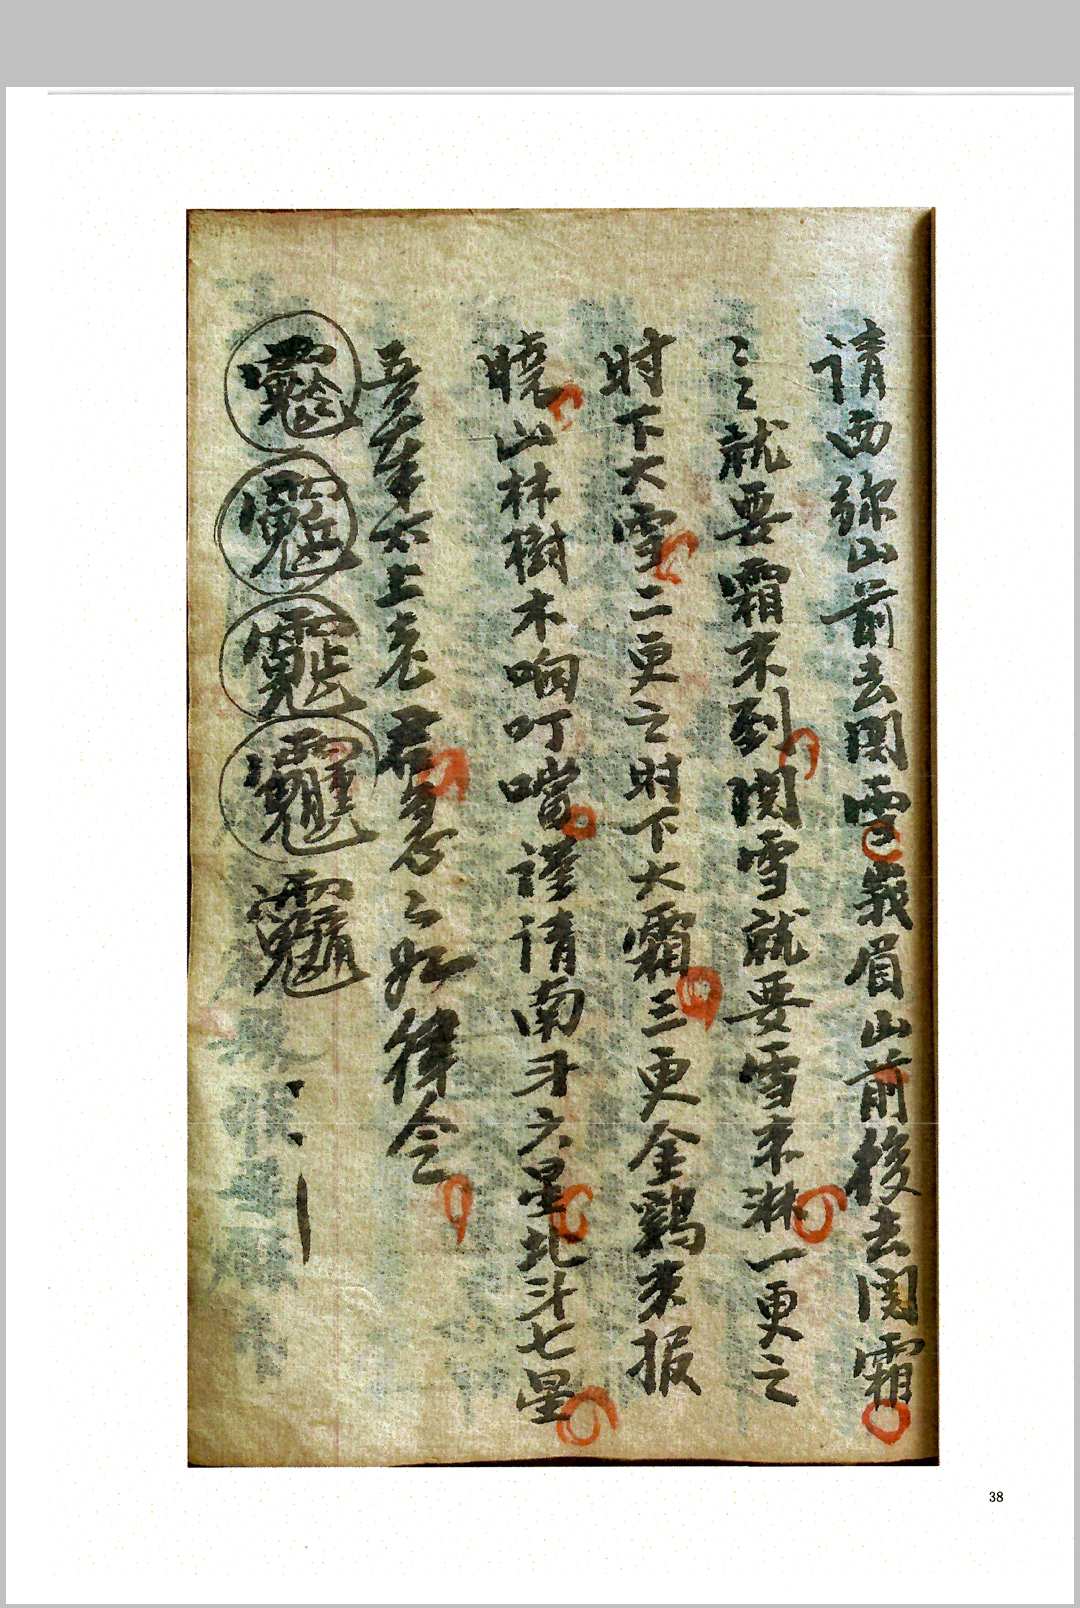 请西弥山前去関雪峩眉山前後去関霜
〻〻就要霜来到関雪就要雪来淋一更之
时下大雪二更之时下大霜三更金鷄来报
曉山林樹木响叮噹谨请南斗六星北斗七星
吾奉太上老君急急〻如律令
38